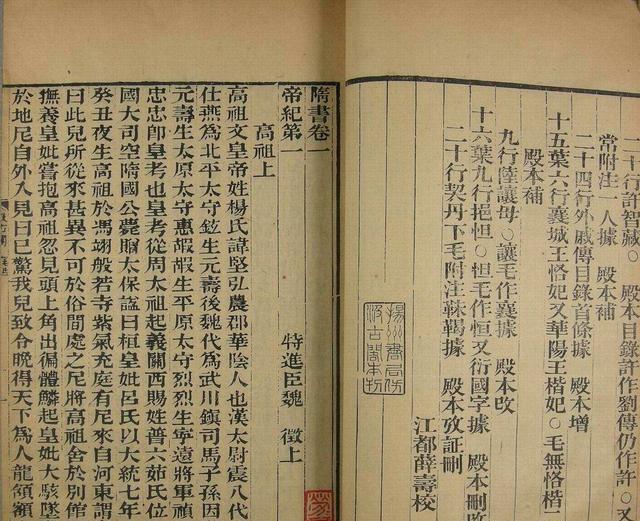 二十行許智藏○ 殿本目錄許作劉傳仍作許○又
常附注一人據 殿本補
二十四行外戚傳目錄首條據 殿本增
十五葉六行襄城王恪妃又華陽王楷妃○毛無恪楷二
殿本補
九行陸讓母○讓毛作襄據 殿本改
十六葉九行挹怛○怛毛作恒又衍國字據 殿本刪改
二十行契丹下毛附注靺鞨據 殿本攷証刪
江都薛壽校
揚州書局仿
汲古閣本刊
隋書卷一
帝紀第一 特進臣魏 徵上
高祖上
高祖文皇帝姓楊氏諱堅弘農郡華陰人也漢太尉震八代
仕燕爲北平太守鉉生元壽後魏代爲武川鎮司馬子孫因
元壽生太原太守惠嘏嘏生平原太守烈烈生寧遠將軍禎
忠忠卽皇考也皇考從周太祖起義關西賜姓普六茹氏位
國大司空隋國公薨贈太保諡曰桓皇妣呂氏以大統七年
癸丑夜生高祖於馮翊般若寺紫氣充庭有尼來自河東謂
曰此兒所從來甚異不可於俗間處之尼將高祖舍於別館
撫養皇妣嘗抱高祖忽見頭上角出徧體鱗起皇妣大駭墜
於地尼自外入見曰已驚我兒致令晚得天下爲人龍頷額